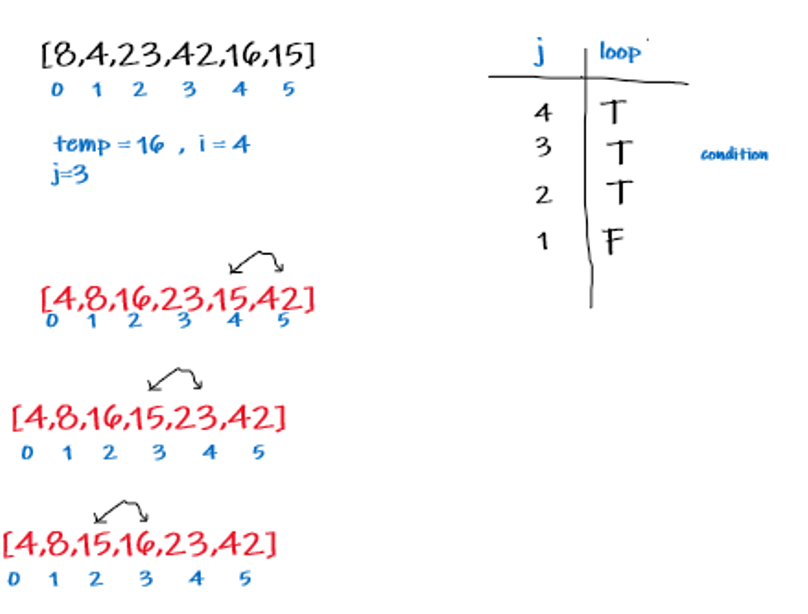 [8,4,23,42,16,15]
0 1 2 3 4 5
temp = 16 , i = 4
j=3
[4,8,16,23,15,42]
0 1 2 3 4 5
[4,8,16,15,23,42]
0 1 2 3 4 5
[4,8,15,16,23,42]
0 1 2 3 4 5
j loop
4 T
3 T
condition
2 T
1 F